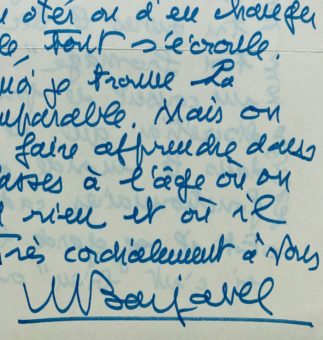 ôter ou d'en changer
le tout s'écroule.
moi je trouve La
mparable. Mais on
faire apprendre dans
asses à l'âge où on
rien et où il
Très cordialement à vous
Barjavel